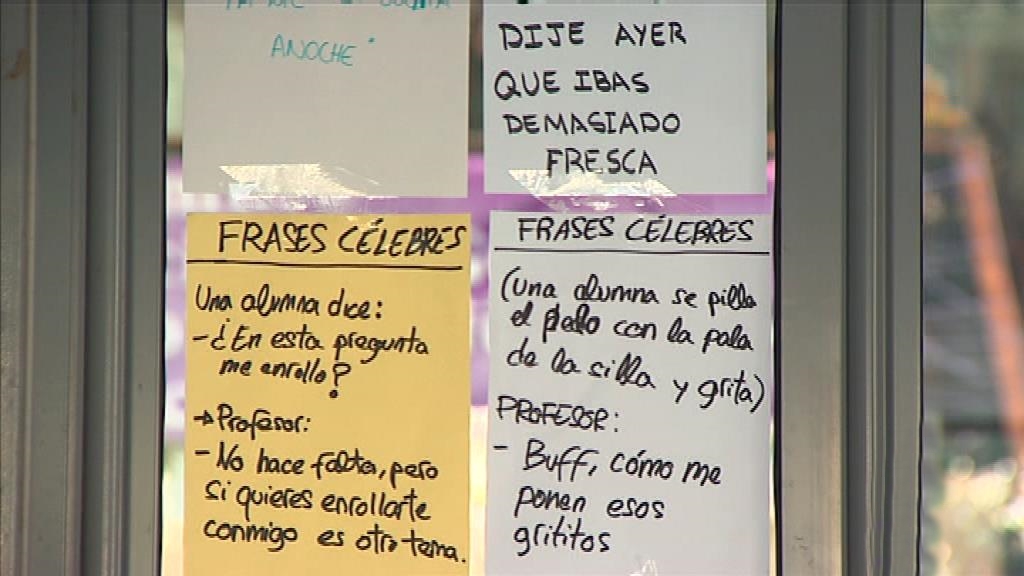 ANOCHE"
DIJE AYER
QUE IBAS
DEMASIADO
FRESCA
FRASES CÉLEBRES
Una alumna dice:
- ¿En esta pregunta
me enrollo?
→ Profesor:
- No hace falta, pero
si quieres enrollarte
conmigo es otro tema.
FRASES CÉLEBRES
(Una alumna se pilla
el pelo con la pala
de la silla y grita)
PROFESOR:
- Buff, cómo me
ponen esos
grititos